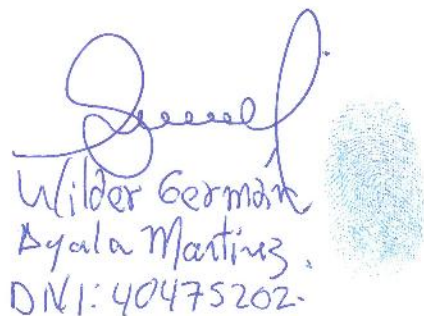 Wilder Germán
Ayala Martinez.
DNI: 40475202-